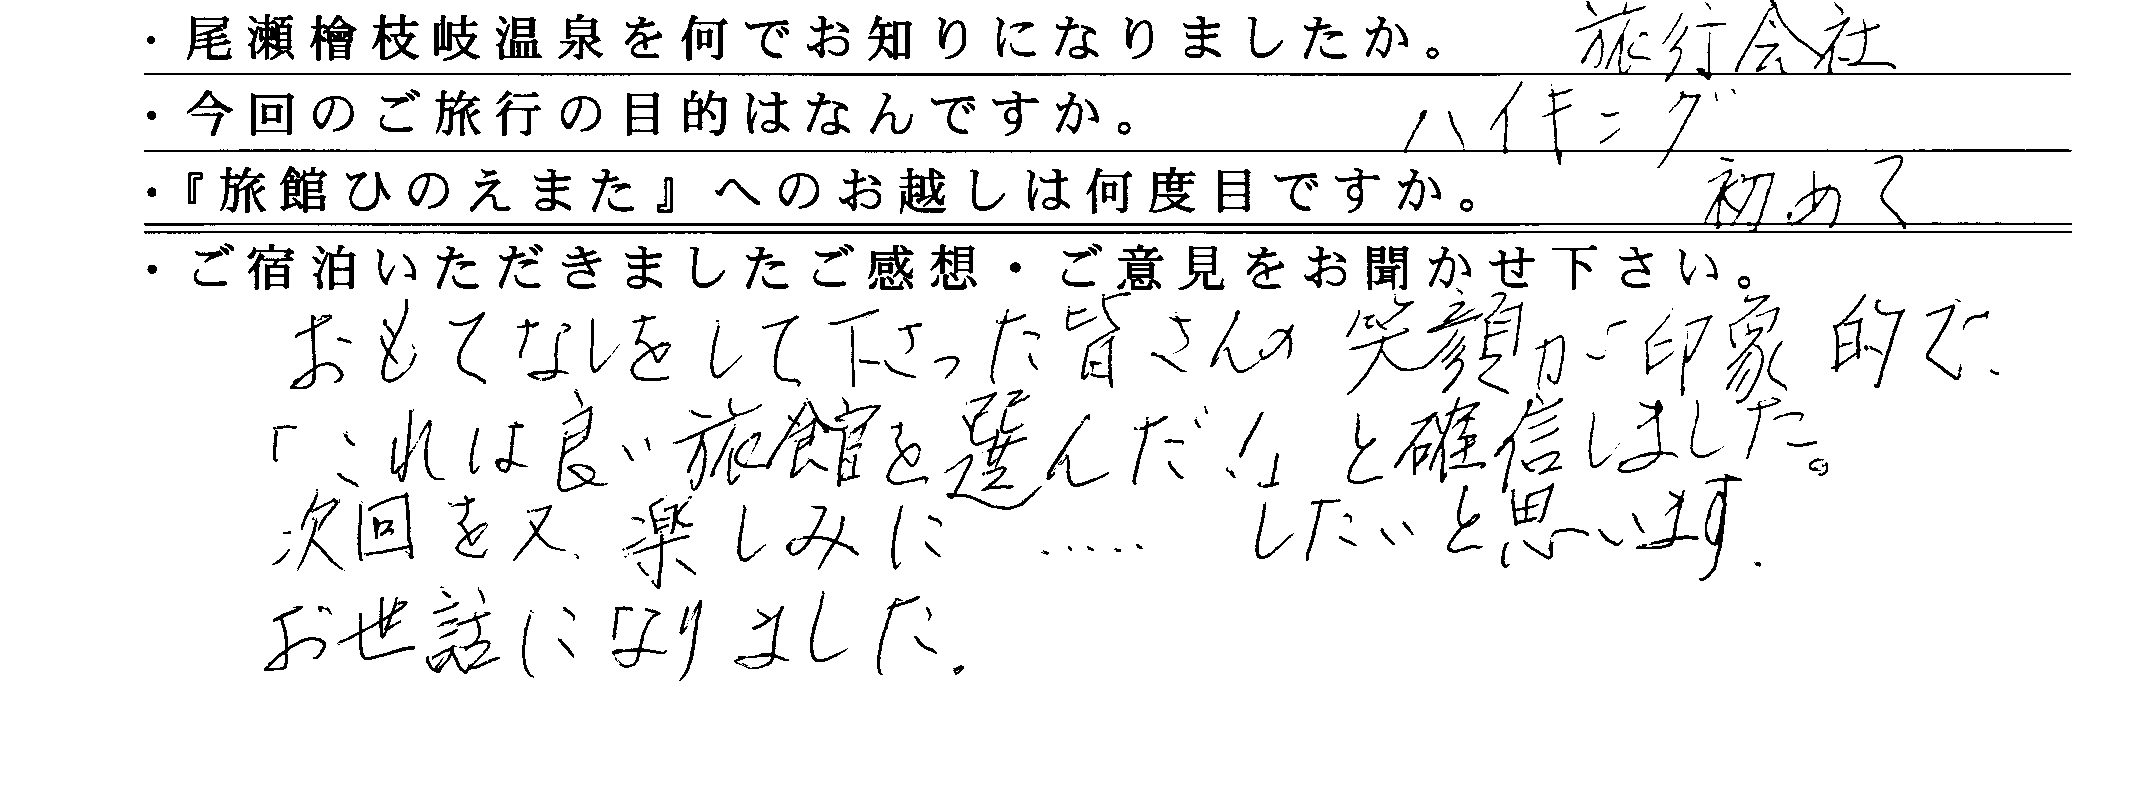 ・尾瀬檜枝岐温泉を何でお知りになりましたか。 旅行会社
・今回のご旅行の目的はなんですか。 ハイキング
・『旅館ひのえまた』へのお越しは何度目ですか。 初めて
・ご宿泊いただきましたご感想・ご意見をお聞かせ下さい。
おもてなしをして下さった皆さんの笑顔が印象的で、
「これは良い旅館を選んだ！」と確信しました。
次回を又、楽しみに ..... したいと思います.
お世話になりました.